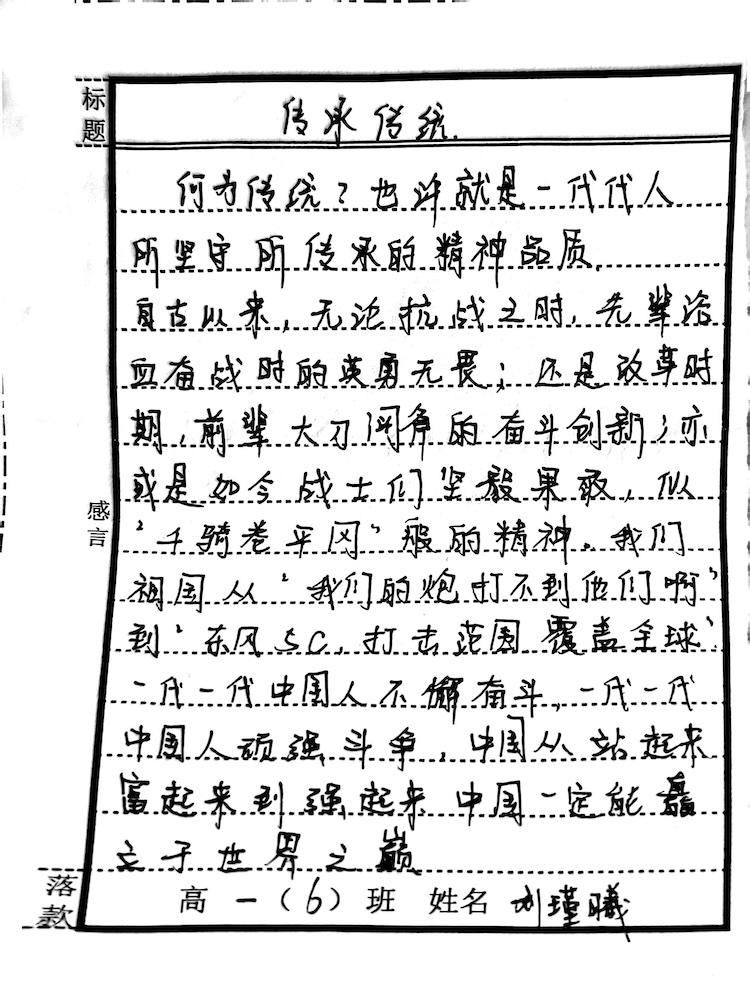 标题
传承传统.
何为传统？也许就是一代代人
所坚守所传承的精神品质.
自古以来，无论抗战之时，先辈浴
血奋战时的英勇无畏；还是改革时
期，前辈大刀阔斧的奋斗创新；亦
或是如今战士们坚毅果敢，似
“千骑卷平冈”般的精神。我们
祖国从“我们的炮打不到他们啊”
到“东风5C，打击范围覆盖全球”
一代一代中国人不懈奋斗，一代一代
中国人顽强斗争，中国从站起来
富起来到强起来 中国一定能矗
立于世界之巅
感言
落款
高一（6）班 姓名 刘瑾曦